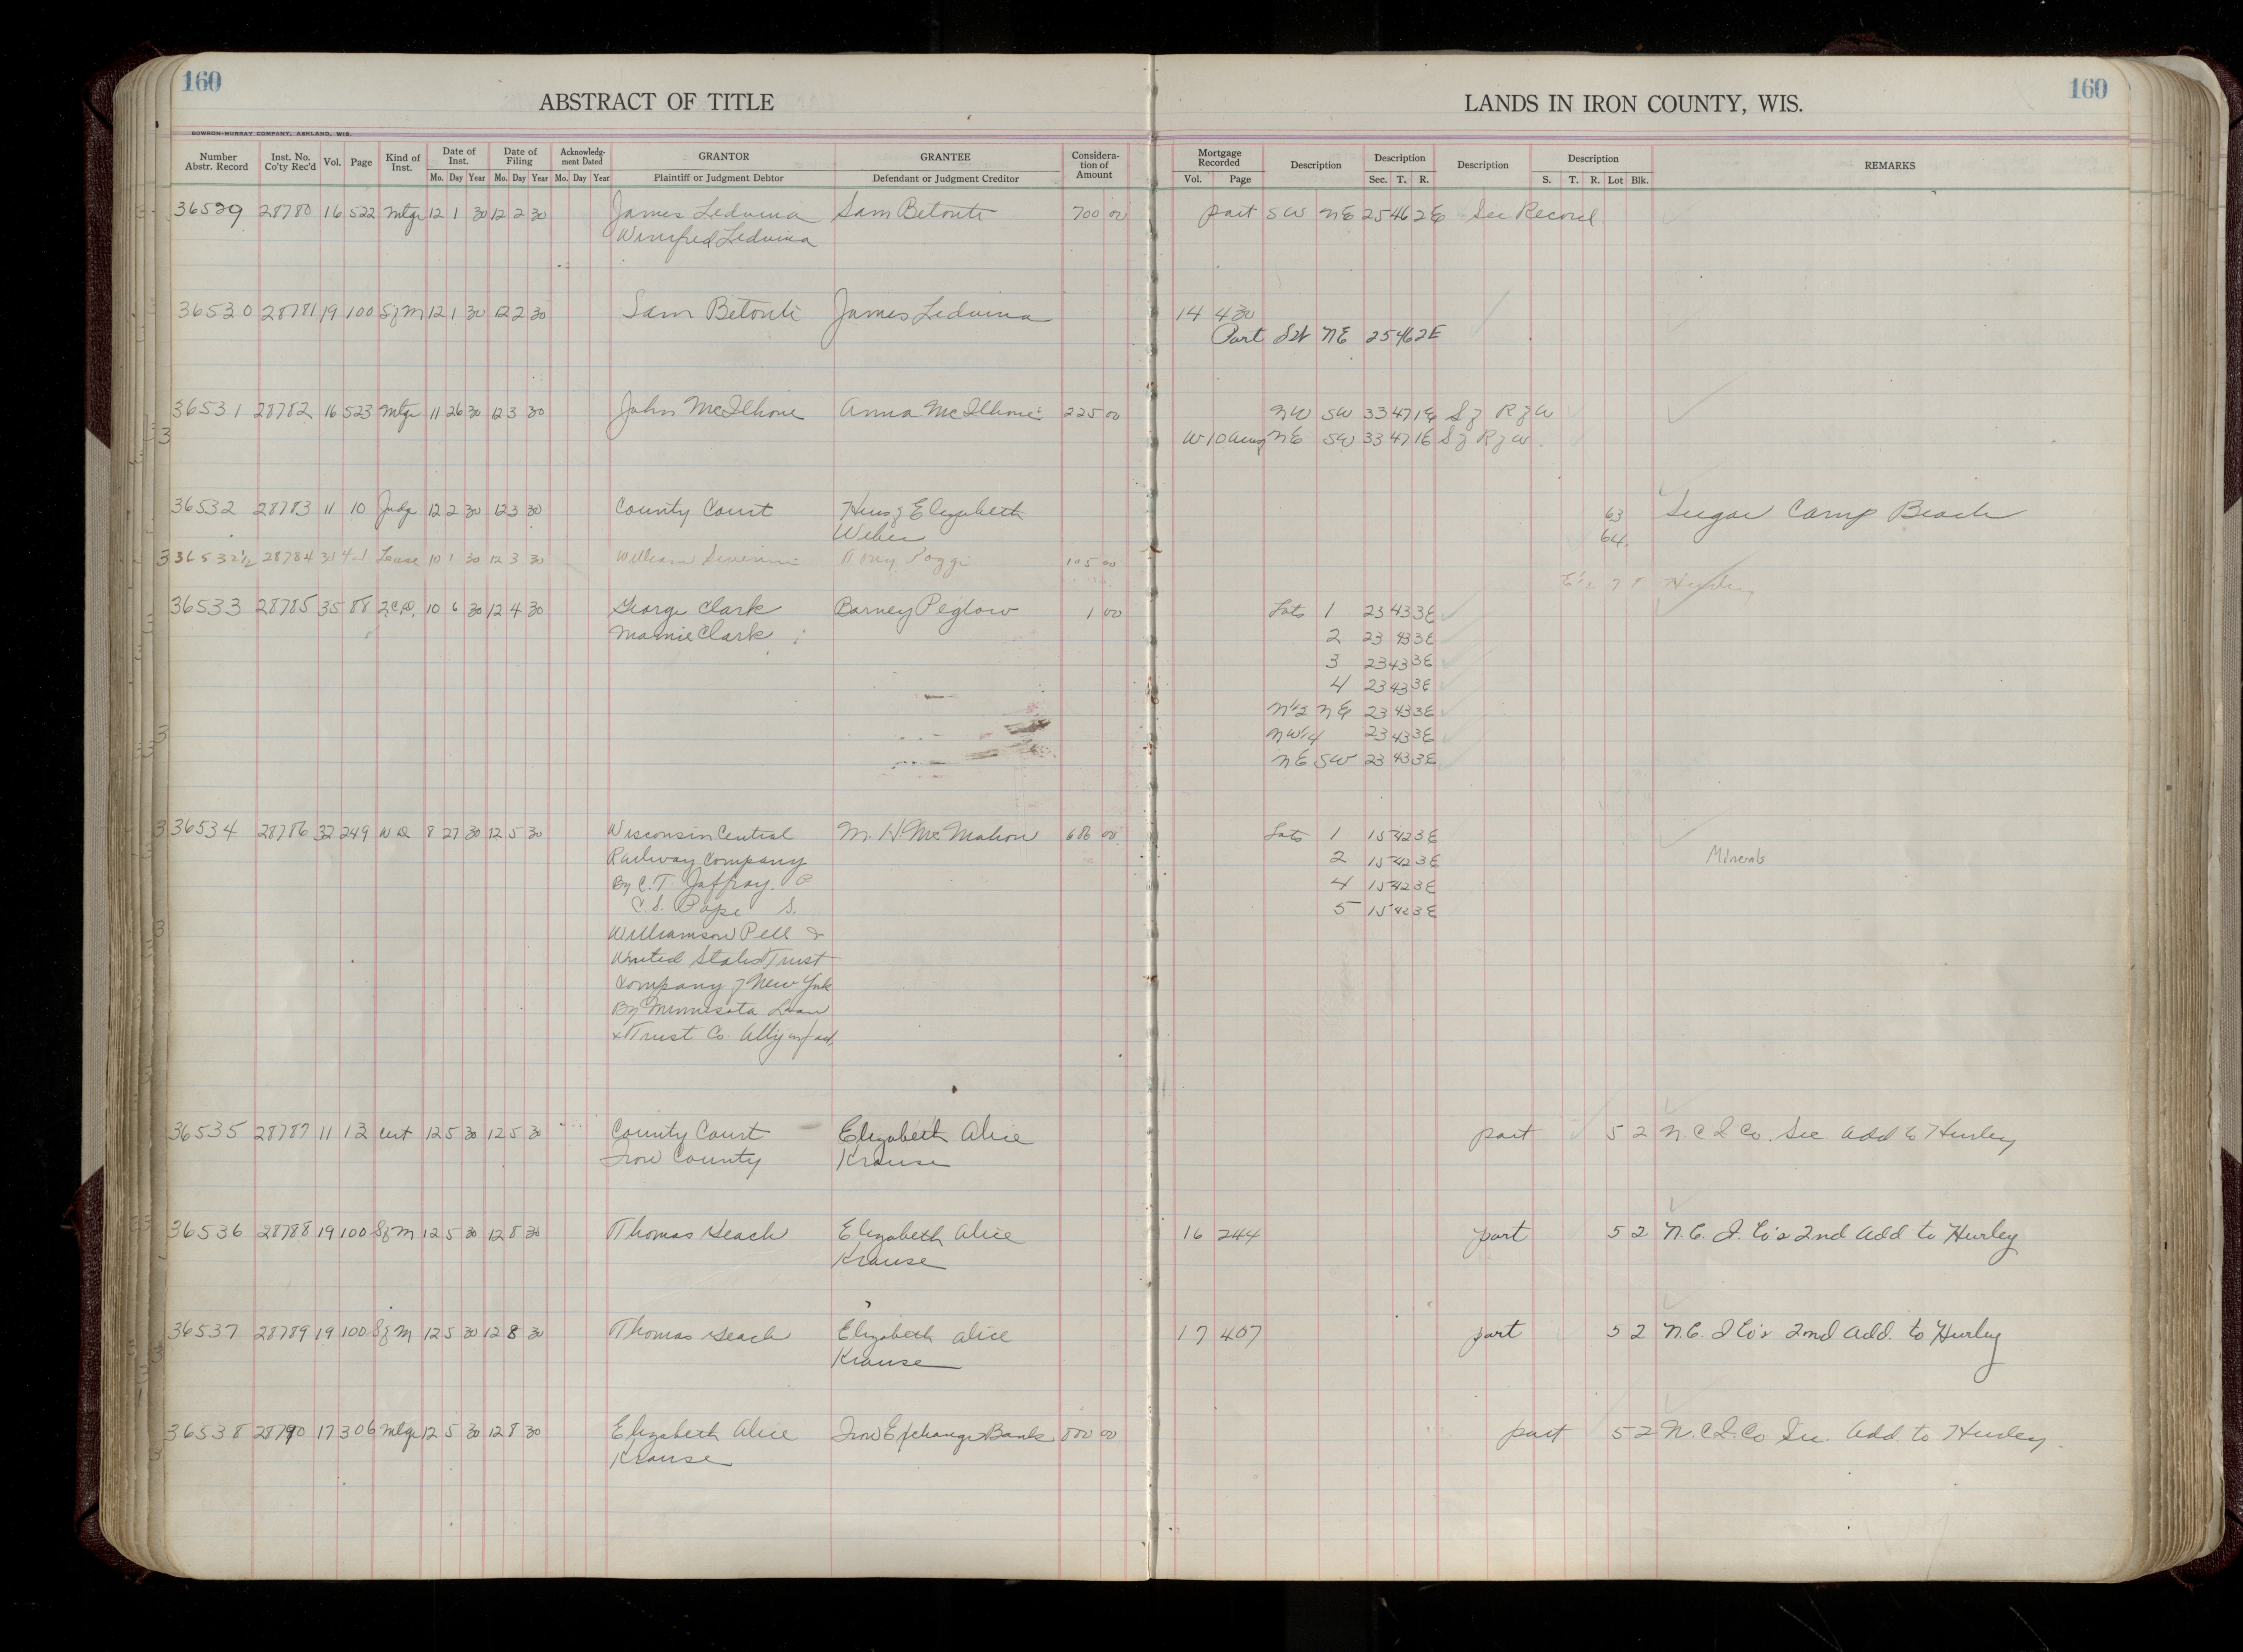 160
160
ABSTRACT OF TITLE
LANDS IN IRON COUNTY, WIS.
BOWRON-MURRAY COMPANY, ASHLAND, WIS.
Number Abstr. Record Inst. No. Co'ty Rec'd Vol. Page Kind of Inst. Date of Inst. Mo. Day Year Date of Filing Mo. Day Year Acknowledgment Dated Mo. Day Year GRANTOR Plaintiff or Judgment Debtor GRANTEE Defendant or Judgment Creditor Consideration of Amount Mortgage Recorded Vol. Page Description Description Sec. T. R. Description Description S. T. R. Lot Blk. REMARKS
36529 28780 16 522 Mtge 12 1 30 12 2 30 James Leduina Sam Betonti 700 00 part SW NE 25 46 2E See Record
Winifred Leduina
36530 28781 19 100 S of M 12 1 30 12 2 30 Sam Betonti James Leduina 14 430
Part SW NE 25 46 2E
36531 28782 16 523 Mtge 11 26 30 12 3 30 John McIlhone Anna McIlhone 225 00 NW SW 33 47 1E S of R of W
W 10 NE SW 33 47 1E S of R of W.
36532 28783 11 10 Judg 12 2 30 12 3 30 County Court Heirs of Elizabeth 63 Sugar Camp Beach
Weber 64
36532½ 28784 Lease 10 1 30 12 3 30 William Tony Poggi 105 00
E½ 7 8 Hurley
36533 28785 35 88 2.C.D. 10 6 30 12 4 30 George Clark Barney Peglow 1 00 Lots 1 23 43 3E
Mamie Clark 2 23 43 3E
3 23 43 3E
4 23 43 3E
N½ NE 23 43 3E
NW¼ 23 43 3E
NE SW 23 43 3E
36534 28786 32 249 W D 8 27 30 12 5 30 Wisconsin Central M. H. McMahon 686 00 Lots 1 15 42 3E
Railway Company 2 15 42 3E Minerals
By C. T. Jaffray. P 4 15 42 3E
C. S. Pope S. 5 15 42 3E
Williamson Pell &
United States Trust
Company of New York
By Minnesota Loan
& Trust Co. Atty in fact
36535 28787 11 12 Cert 12 5 30 12 5 30 County Court Elizabeth Alice part 5 2 N. C I Co. Sec. Add to Hurley
Iron County Krause
36536 28788 19 100 S of M 12 5 30 12 8 30 Thomas Geach Elizabeth Alice 16 244 part 5 2 N. C. I. Co's 2nd Add to Hurley
Krause
36537 28789 19 100 S of M 12 5 30 12 8 30 Thomas Geach Elizabeth Alice 17 407 part 5 2 N. C. I Co's 2nd Add. to Hurley
Krause
36538 28790 17 306 Mtge 12 5 30 12 8 30 Elizabeth Alice Iron Exchange Bank 800 00 part 5 2 N. C I. Co Sec. Add. to Hurley.
Krause